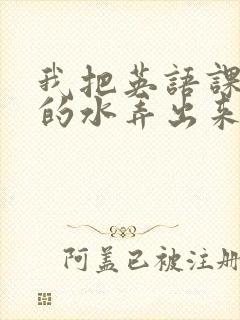 我把英語課
的水弄出來
阿蓋已被注册